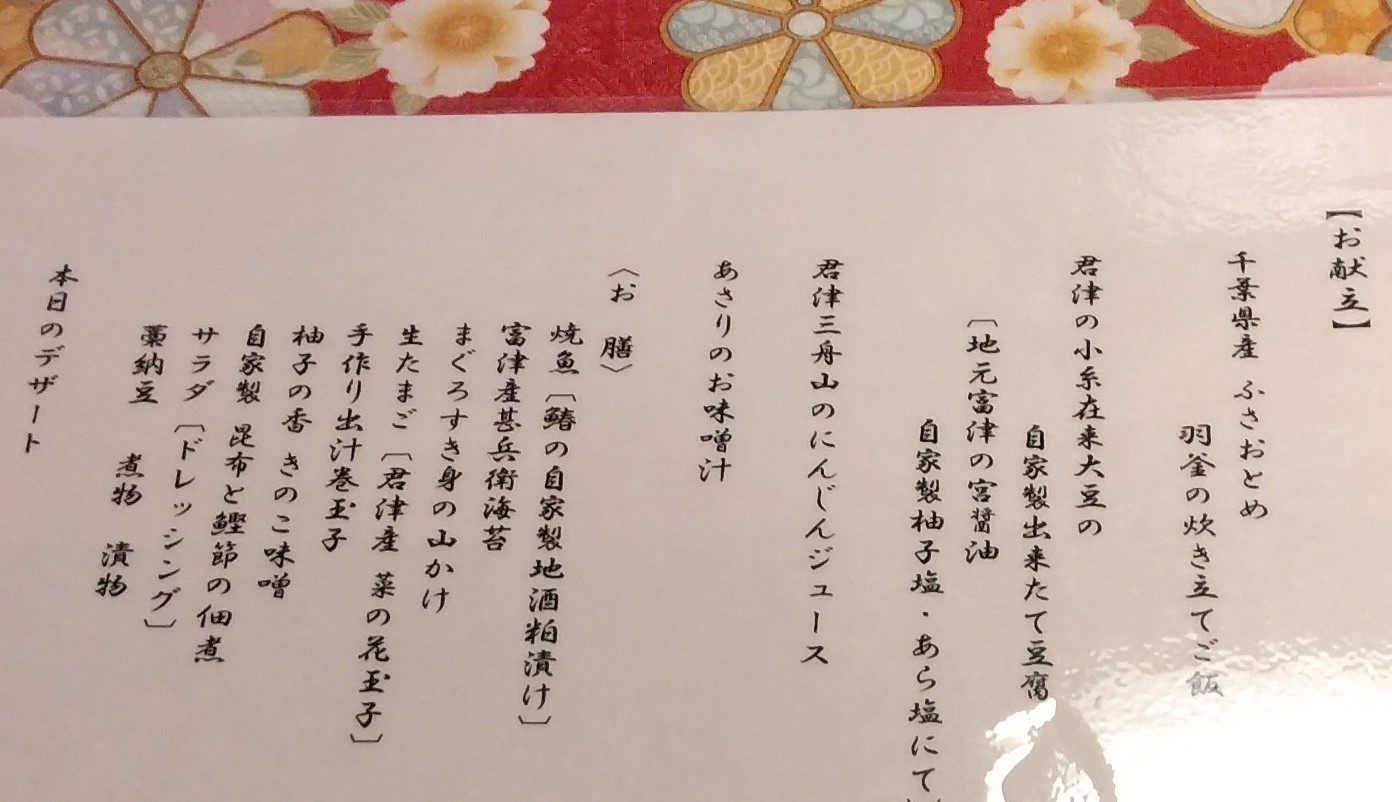 【お献立】
千葉県産 ふさおとめ
羽釜の炊き立てご飯
君津の小糸在来大豆の
自家製出来たて豆腐
〔地元富津の宮醤油
自家製柚子塩・あら塩にて〕
君津三舟山のにんじんジュース
あさりのお味噌汁
〈お 膳〉
焼魚〔鰆の自家製地酒粕漬け〕
富津産甚兵衛海苔
まぐろすき身の山かけ
生たまご〔君津産 菜の花玉子〕
手作り出汁巻玉子
柚子の香 きのこ味噌
自家製 昆布と鰹節の佃煮
サラダ〔ドレッシング〕
藁納豆 煮物 漬物
本日のデザート